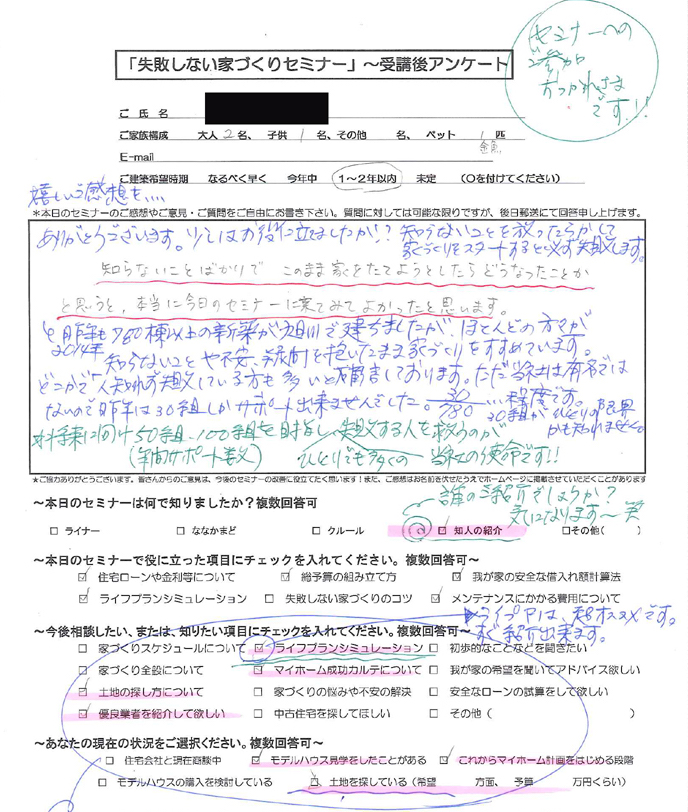 セミナーへの
ご参加
おつかれさま
です!!
「失敗しない家づくりセミナー」~受講後アンケート
ご 氏 名
ご家族構成 大人 2 名、 子供 1 名、その他 名、 ペット 1 匹
金魚
E-mail
ご建築希望時期 なるべく早く 今年中 1~2年以内 未定 (○を付けてください)
嬉しい感想を、、、、
*本日のセミナーのご感想やご意見・ご質問をご自由にお書き下さい。質問に対しては可能な限りですが、後日郵送にて回答申し上げます。
ありがとうございます。少しはお役に立てましたか!? 知らないことを放ったらかして
家づくりをスタートすると必ず失敗します。
知らないことばかりで このまま家をたてようとしたらどうなったことか
と思うと、本当に今日のセミナーに来てみてよかったと思います。
昨年も780棟以上の新築が旭川で建ちましたが、ほとんどの方々が
2014年
知らないことや不安、疑問を抱いたまま家づくりをすすめています。
どこかで人知れず失敗している方も多いと 断言しております。ただ当社は有名では
ないので昨年は30組しかサポート出来ませんでした。 30/780 …程度です。
30組がひとりの限界
かも知れません。
来季に向け50組、100組を目指し 失敗する人を救うのが
(年間サポート数) ひとりでも多くの 当社の使命です!!
*ご協力ありがとうございます。皆さんからのご意見は、今後のセミナーの改善に役立てたく思います!また、ご感想はお名前を伏せたうえでホームページに掲載させていただくことがあります
誰のご紹介でしょうか?
気になります~笑
~本日のセミナーは何で知りましたか?複数回答可
□ ライナー □ ななかまど □ クルール ☑ 知人の紹介 □その他( )
~本日のセミナーで役に立った項目にチェックを入れてください。複数回答可~
☑ 住宅ローンや金利等について ☑ 総予算の組み立て方 ☑ 我が家の安全な借入れ額計算法
☑ ライフプランシミュレーション □ 失敗しない家づくりのコツ ☑ メンテナンスにかかる費用について
ライフPは、超オススメです。
すぐ紹介出来ます。
~今後相談したい、または、知りたい項目にチェックを入れてください。複数回答可~
□ 家づくりスケジュールについて ☑ ライフプランシミュレーション □ 初歩的なことなどを聞きたい
□ 家づくり全般について ☑ マイホーム成功カルテについて □ 我が家の希望を聞いてアドバイス欲しい
☑ 土地の探し方について □ 家づくりの悩みや不安の解決 □ 安全なローンの試算をして欲しい
☑ 優良業者を紹介して欲しい □ 中古住宅を探してほしい □ その他 ( )
~あなたの現在の状況をご選択ください。複数回答可~
□ 住宅会社と現在商談中 ☑ モデルハウス見学をしたことがある ☑ これからマイホーム計画をはじめる段階
□ モデルハウスの購入を検討している ☑ 土地を探している (希望 方面、 予算 万円くらい)